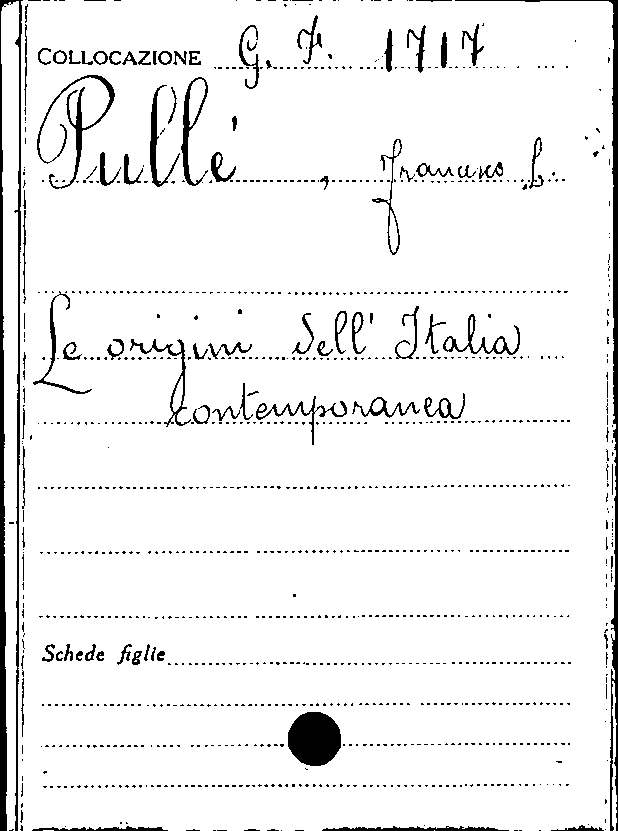 COLLOCAZIONE G. F. 1717
Pullé, Francesco L.
Le origini dell' Italia
contemporanea
Schede figlie